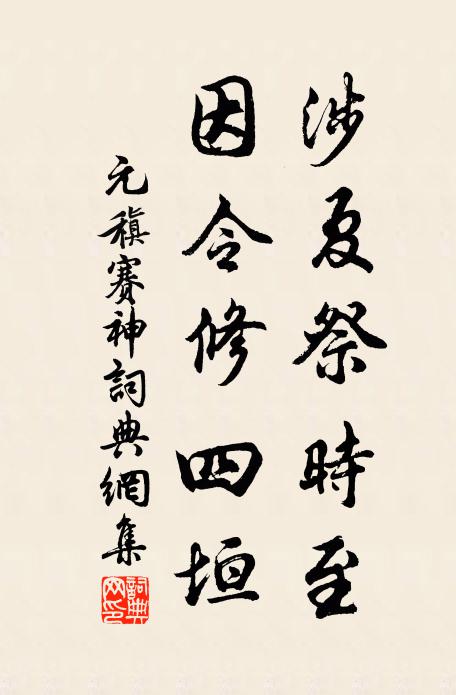 涉夏祭時至
因令修四垣
元稹賽神詞典網集
詞典网印